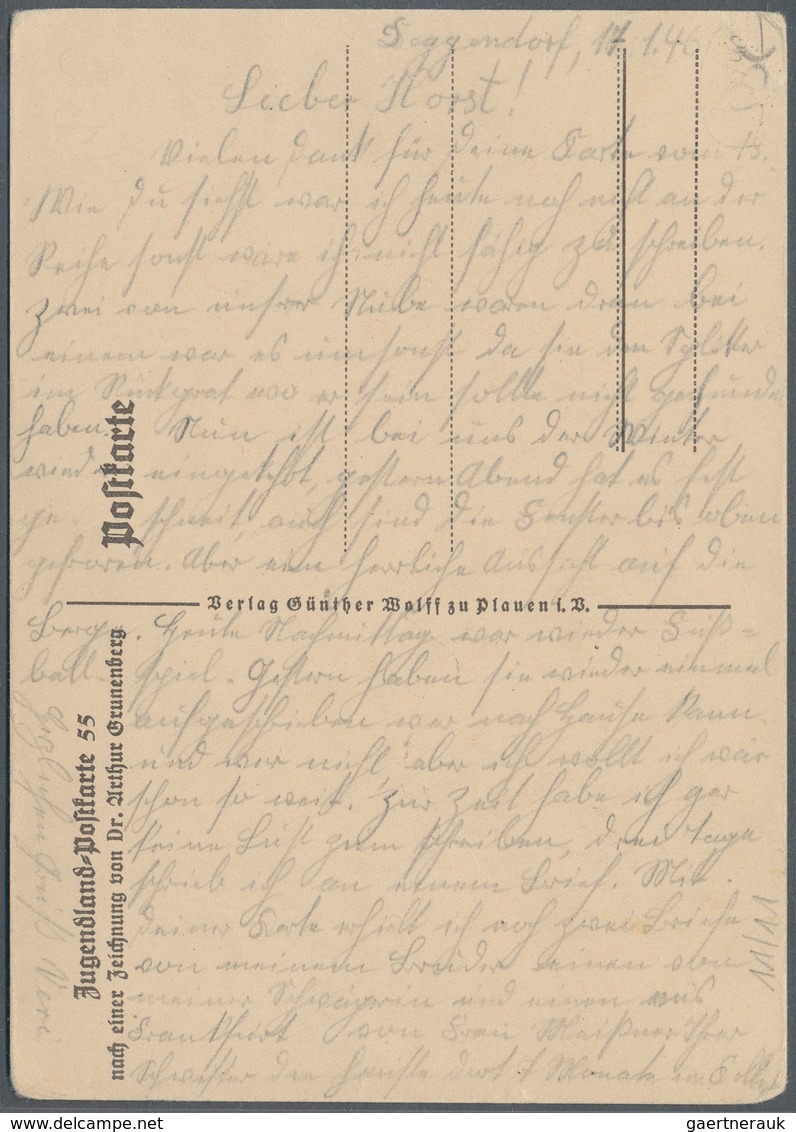 Deggendorf, 17.1.46
Lieber Horst!
Vielen Dank für deine Karte vom 13.
Wie Du siehst war ich heute noch nicht an der
Reihe sonst wäre ich nicht fähig zu schreiben.
Zwei von unsrer Stube waren dran bei
einem war es umsonst da sie den Splitter
im Rückgrat wo er sein sollte nicht gefunden
haben. Nun ist bei uns der Winter
wieder eingekehrt, gestern Abend hat es fest
ge- schneit, auch sind die Fenster bis oben
gefroren. Aber eine herrliche Aussicht auf die
Berge. Heute Nachmittag war wieder Fuß-
ball- spiel. Gestern haben sie wieder einmal
aufgeschrieben wer nach Hause kann
und wer nicht, aber ich wollt ich wär
schon so weit. Zur Zeit habe ich gar
keine Lust zum schreiben, drei Tage
schrieb ich an einem Brief. Mit
deiner Karte erhielt ich noch zwei Briefe
von meinem Bruder einen von
meiner Schwägerin und einen aus
Frankfurt von Frau Meißner Ihrer
Schwester die
Monate
Herzlichen Gruß
Postkarte
Verlag Günther Wolff zu Plauen i. V.
Jugendland-Postkarte 55
nach einer Zeichnung von Dr. Arthur Grunenberg
11/11
gaertnerauk